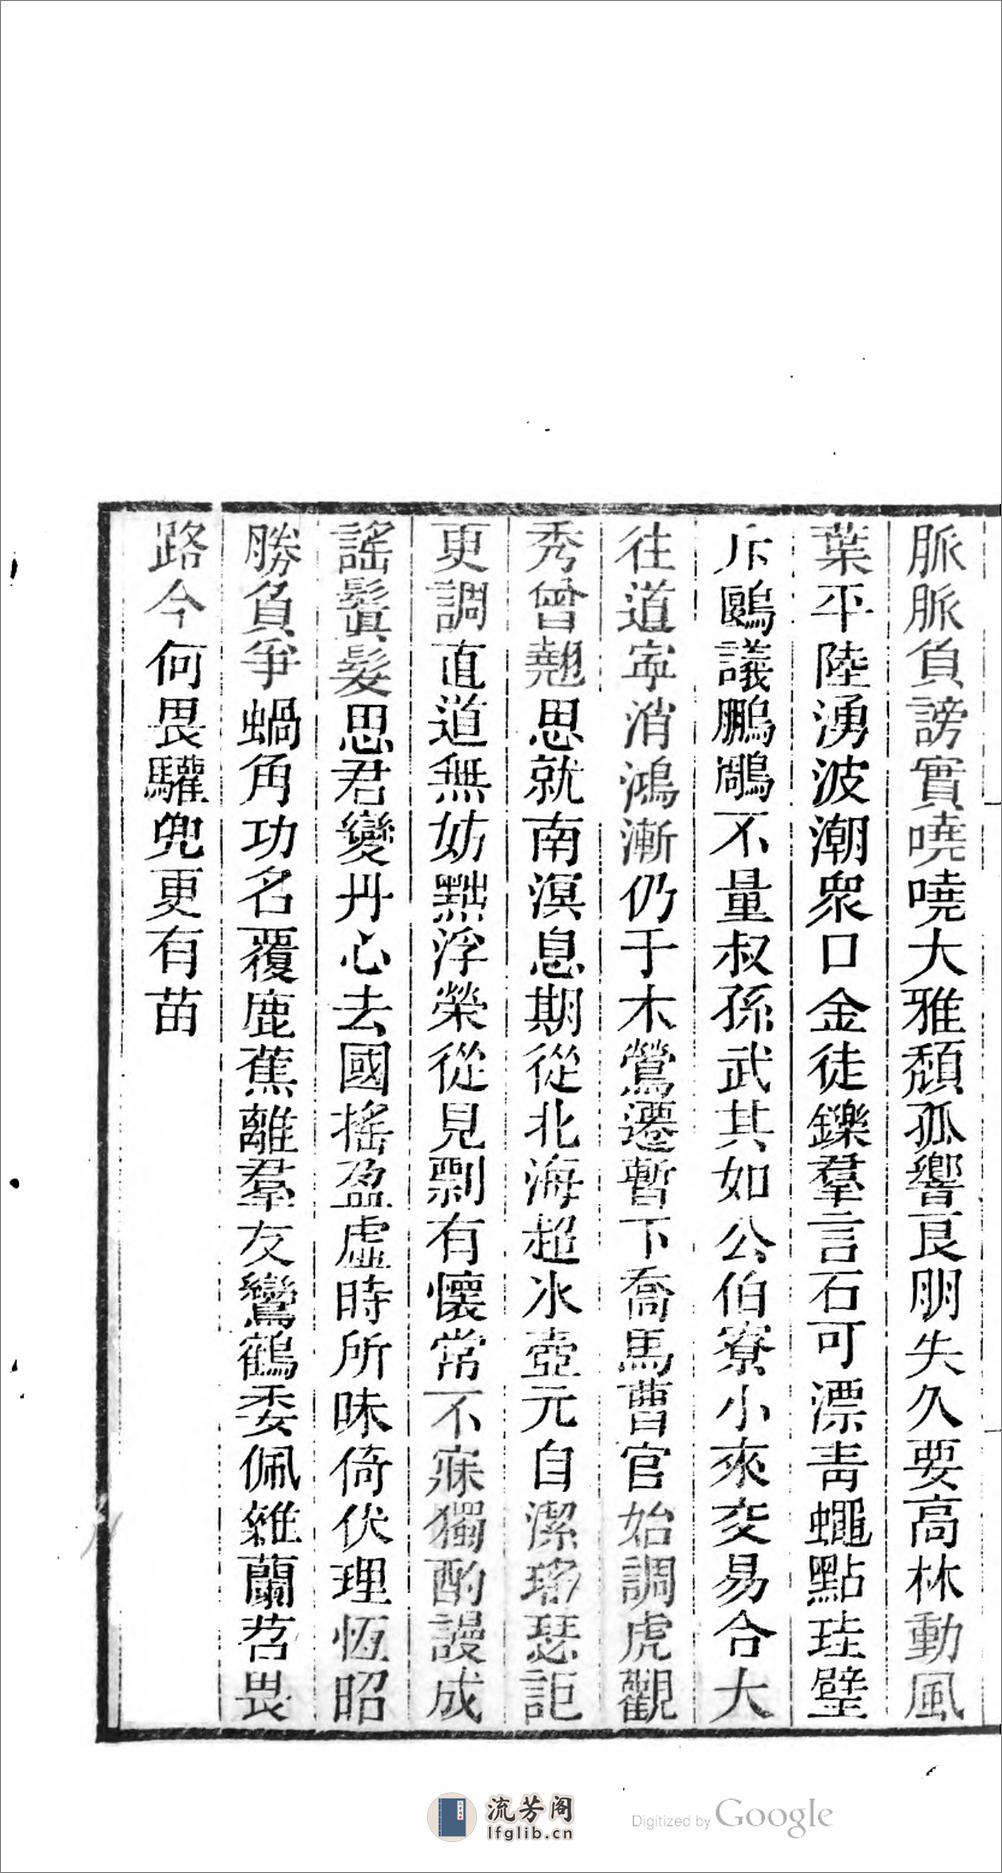 脈脈負謗實嘵嘵大雅頹孤響良朋失久要高林動風
葉平陸湧波潮衆口金徒鑠羣言石可漂靑蠅點珪璧
斥鷃議鵬鵰不量叔孫武其如公伯寮小來交易合大
往道寜消鴻漸仍于木鶯遷暫下喬馬曹官始調虎觀
秀曾翹思就南溟息期從北海超冰壺元自潔瑤瑟詎
更調直道無妨黜浮榮從見剽有懷常不寐獨酌謾成
謠鬒髮思君變丹心去國搖盈虛時所昧倚伏理恆昭
勝負爭蝸角功名覆鹿蕉離羣友鸞鶴委佩雜蘭苕畏
路今何畏驩兜更有苗
流芳阁
lfglib.cn
Digitized by Google